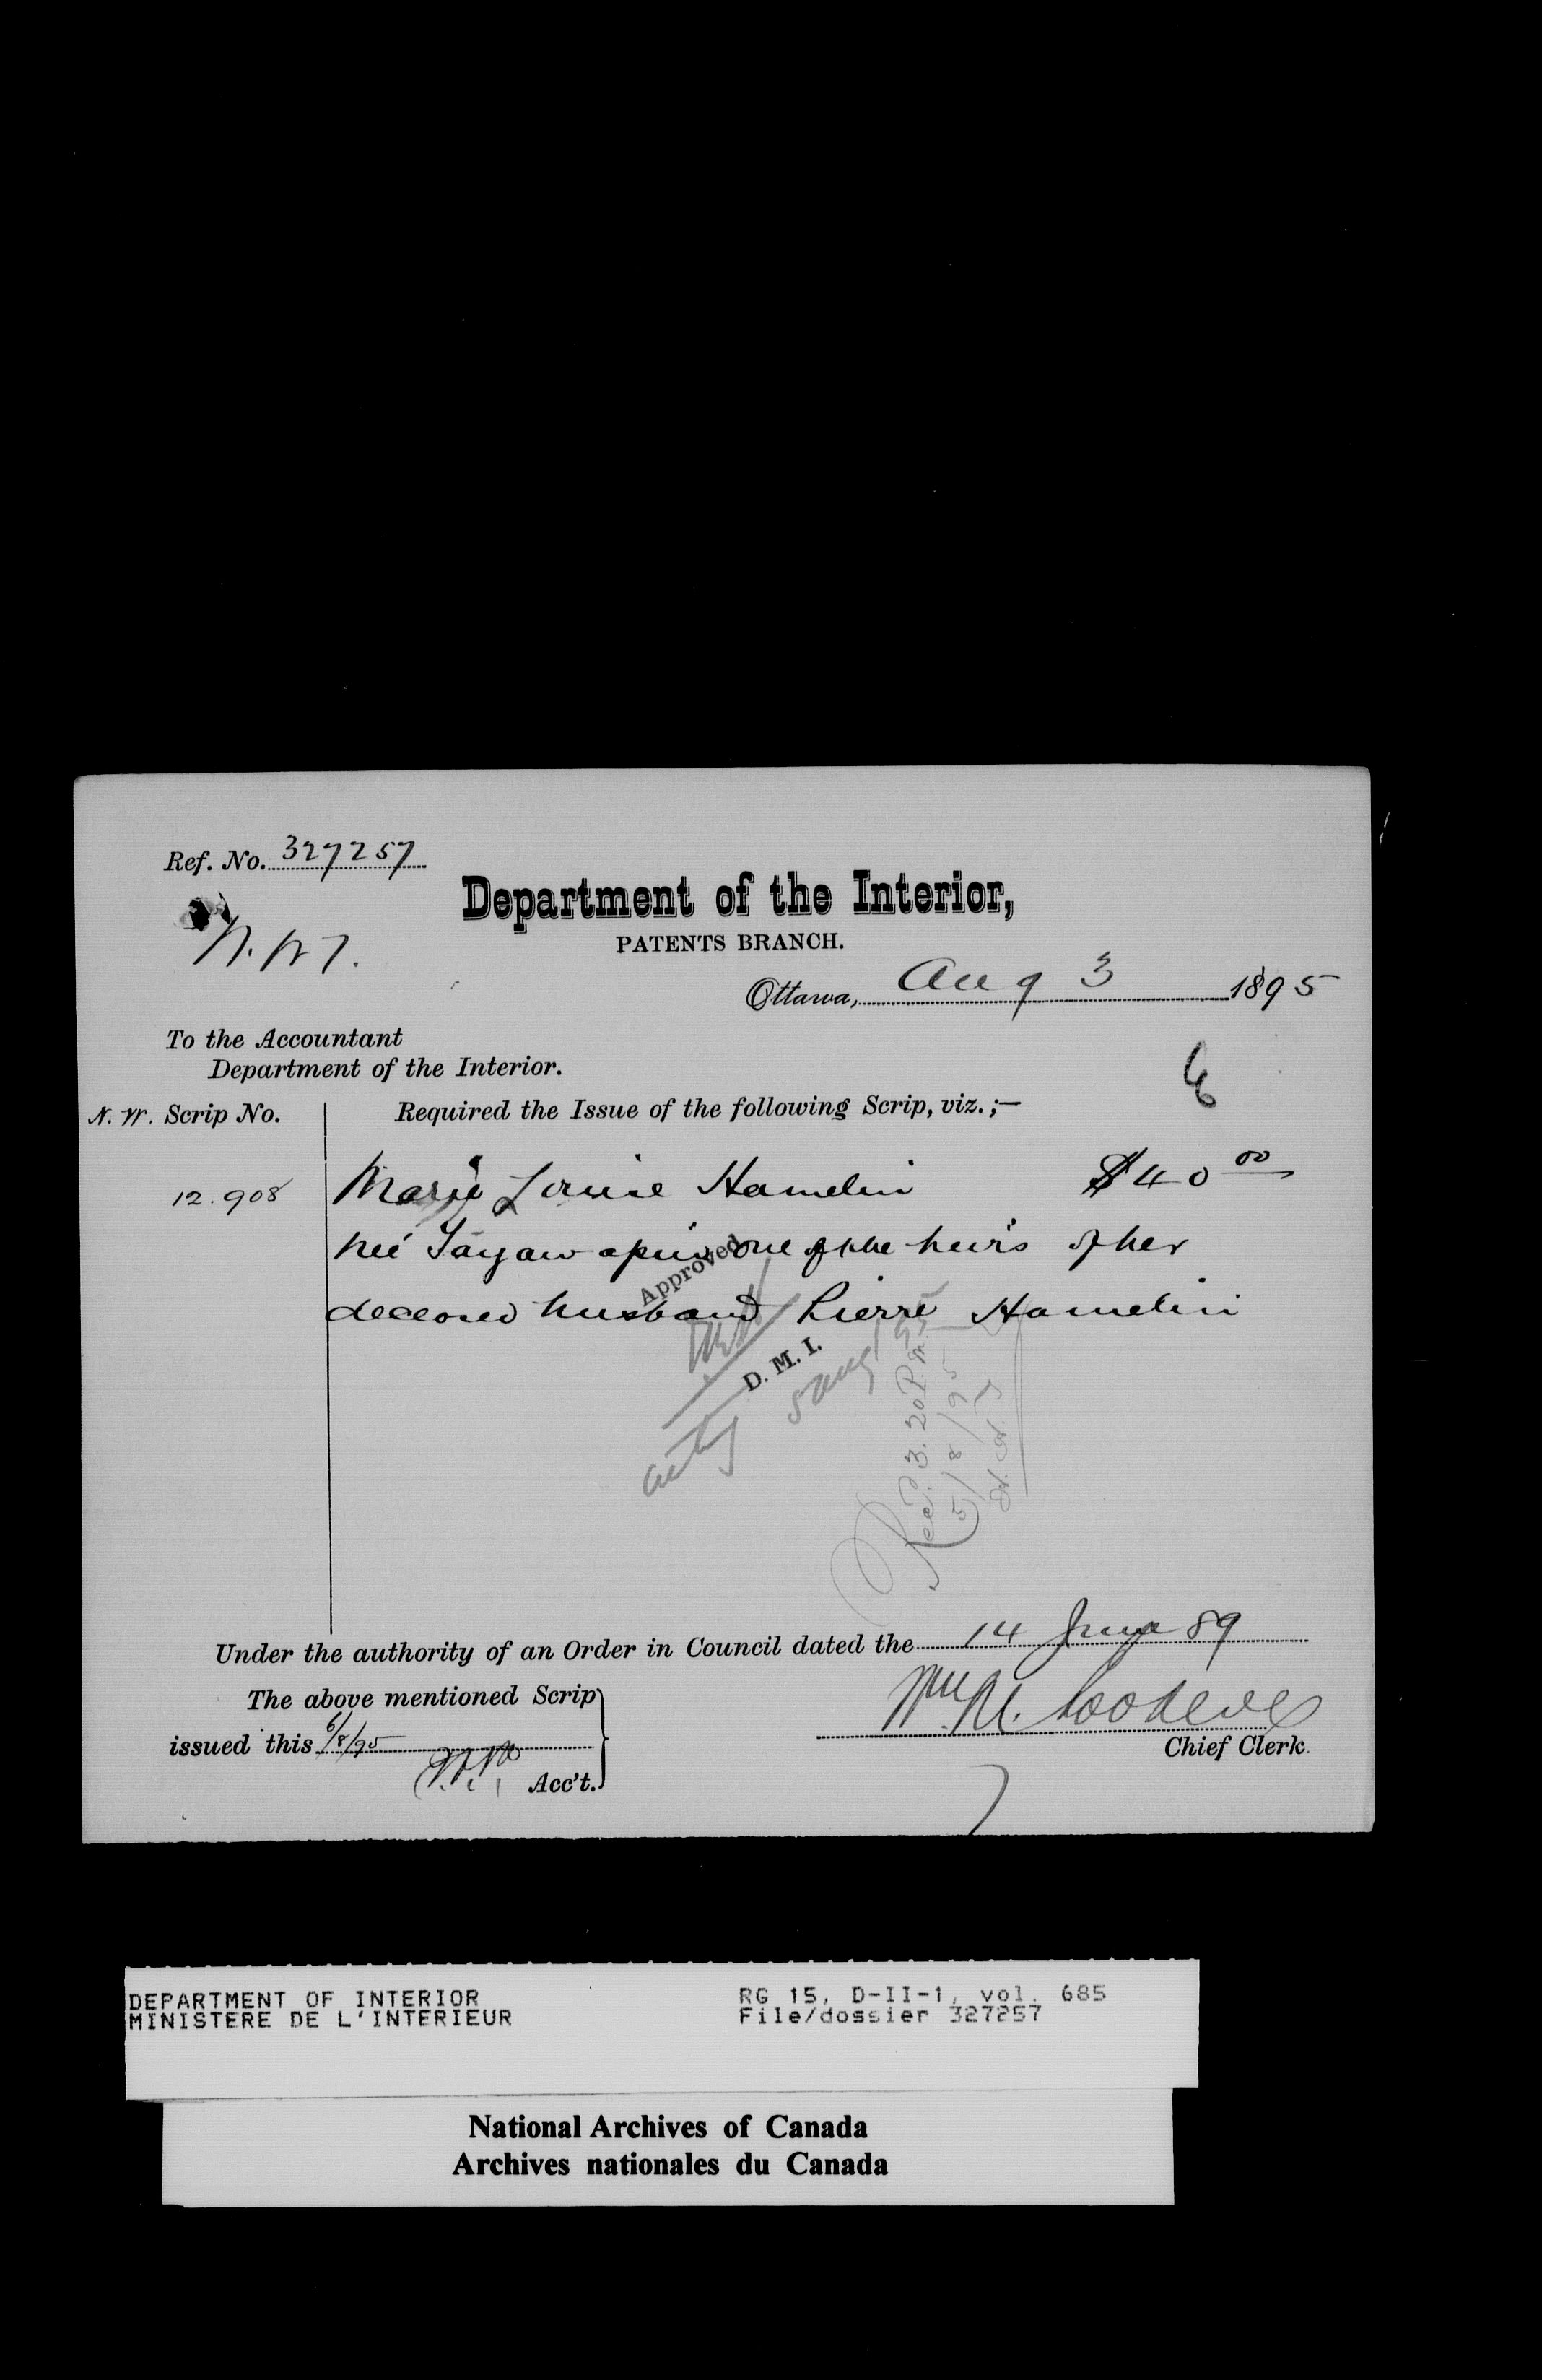 Ref. No. 327257
Department of the Interior,
N.W.T.
PATENTS BRANCH.
Ottawa, Aug 3 1895
To the Accountant
Department of the Interior.
N. W. Scrip No.
Required the Issue of the following Scrip, viz.;—
12.908
Marie Louise Hamelin $40 00
neé one of the heirs of her
deceased husband Pierre Hamelin
Approved
D. M. I.
5 Aug 95
Recd. 3.20 P.m.
5/8/95
Under the authority of an Order in Council dated the 14 June 89
The above mentioned Scrip
issued this 6/8/95
Acc't.
Chief Clerk.
DEPARTMENT OF INTERIOR
MINISTERE DE L'INTERIEUR
RG 15, D-II-1, vol. 685
File/dossier 327257
National Archives of Canada
Archives nationales du Canada